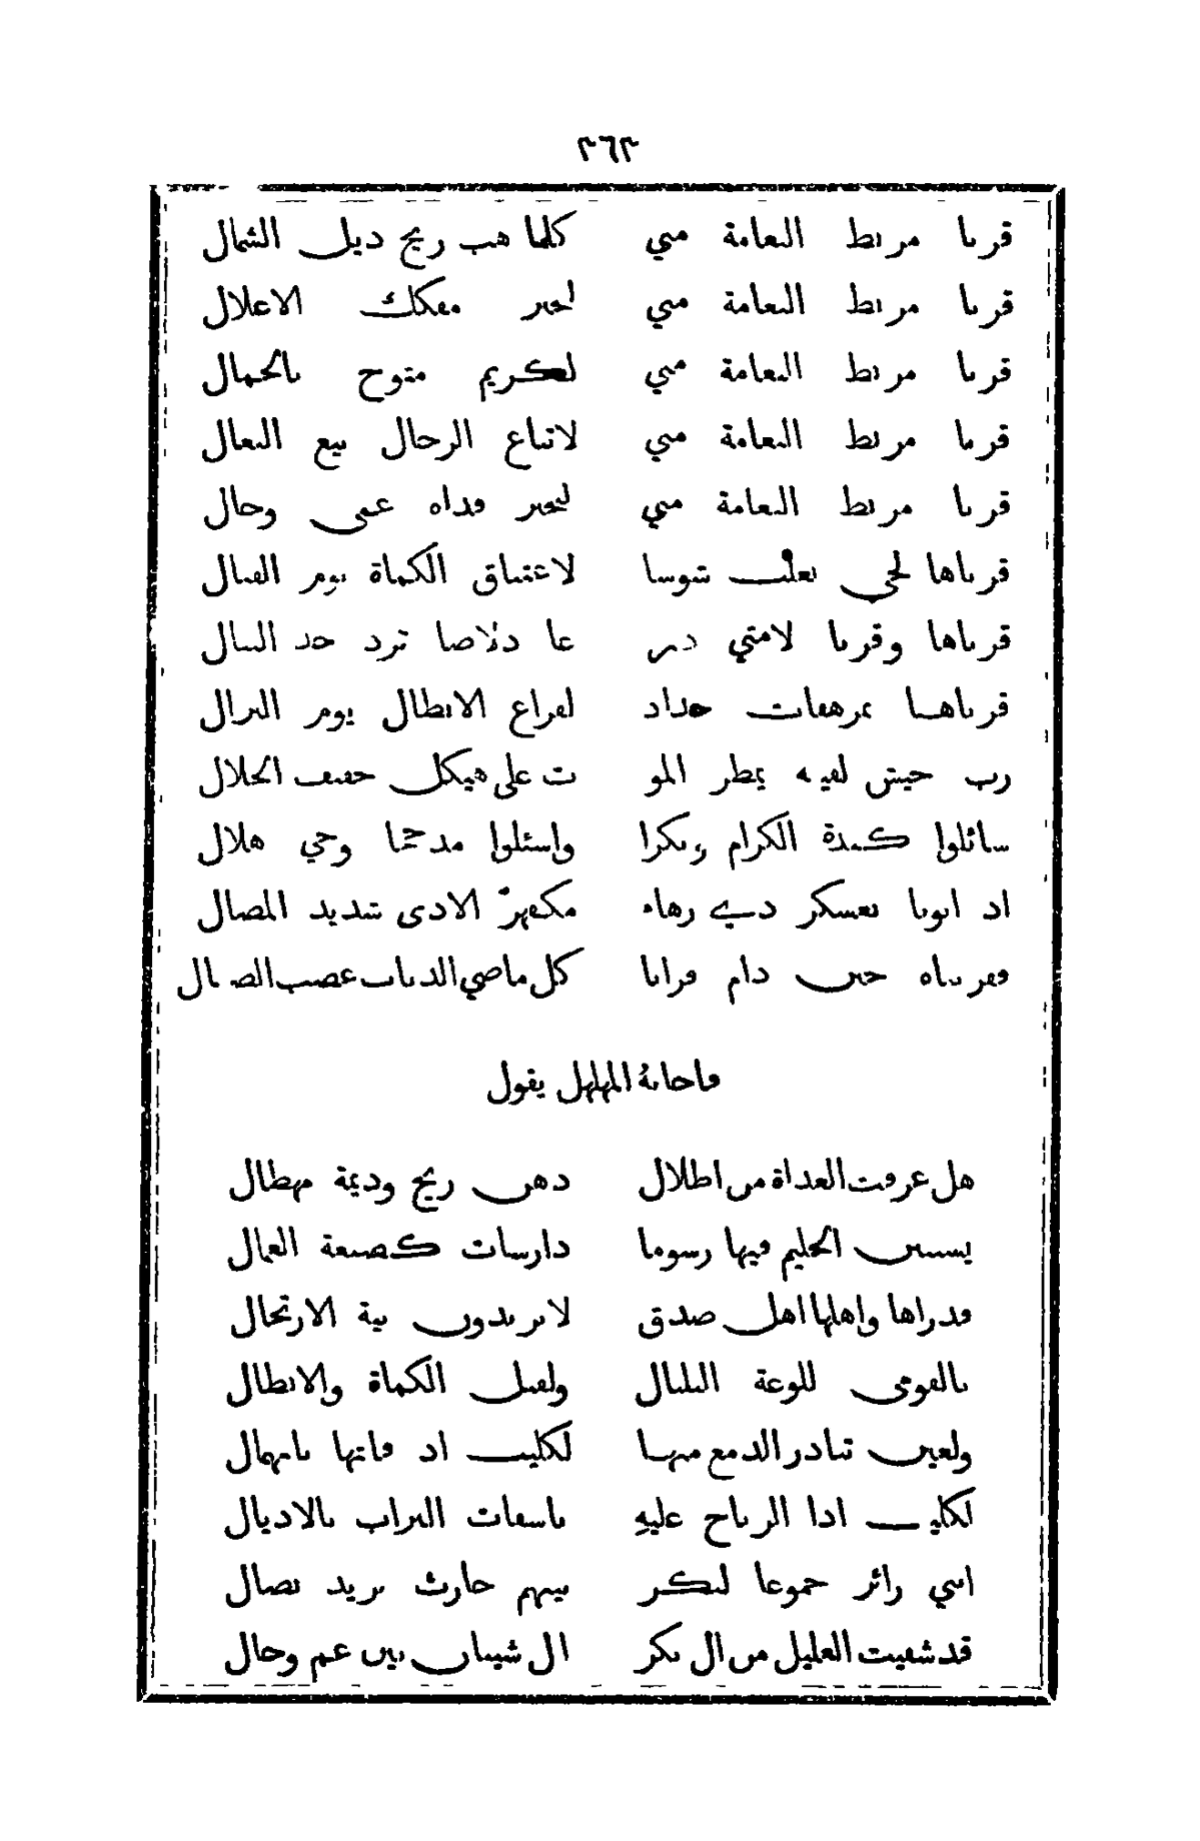 ٢٦٣
قربا مربط النعامة مني كلما هب ريح ذيل الشمال
قربا مربط النعامة مني لبجير مفكك الاغلال
قربا مربط النعامة مني لكريم متوج بالجمال
قربا مربط النعامة مني لا نباع الرجال بيع النعال
قربا مربط النعامة مني لبجير فداه عمي وخال
قرباها لحي تغلب شوسا لاعتناق الكماة يوم القتال
قرباها وقربا لامتي در عا دلاصا ترد حد النبال
قرباها بمرهفات حداد لقراع الابطال يوم النزال
رب جيش لقيته يمطر المو ت على هيكل خفيف الجلال
سائلوا كندة الكرام وبكرا واسئلوا مذحجا وحي هلال
اذ اتونا بعسكر ذي زهاء مكفهرّ الاذى شديد المصال
فقريناه حين رام قرانا كل ماضي الذباب عضب الصقال
فاجابهُ المهلهل يقول
هل عرفت الغداة من اطلال رهن ريح وديمة مهطال
يستبين الحليم فيها رسوما دارسات كصنعة العمال
قد راها واهلها اهل صدق لا يريدون نية الارتحال
يالقومي للوعة البلبال ولقتل الكماة والابطال
ولعين تبادر الدمع منها لكليب اذ فاتها بانهمال
لكليب اذا الرياح عليهِ ناسفات التراب بالاذيال
انني زائر جموعا لبكر بينهم حارث يريد نضال
قد شفيت الغليل من ال بكر ال شيبان بين عم وخال